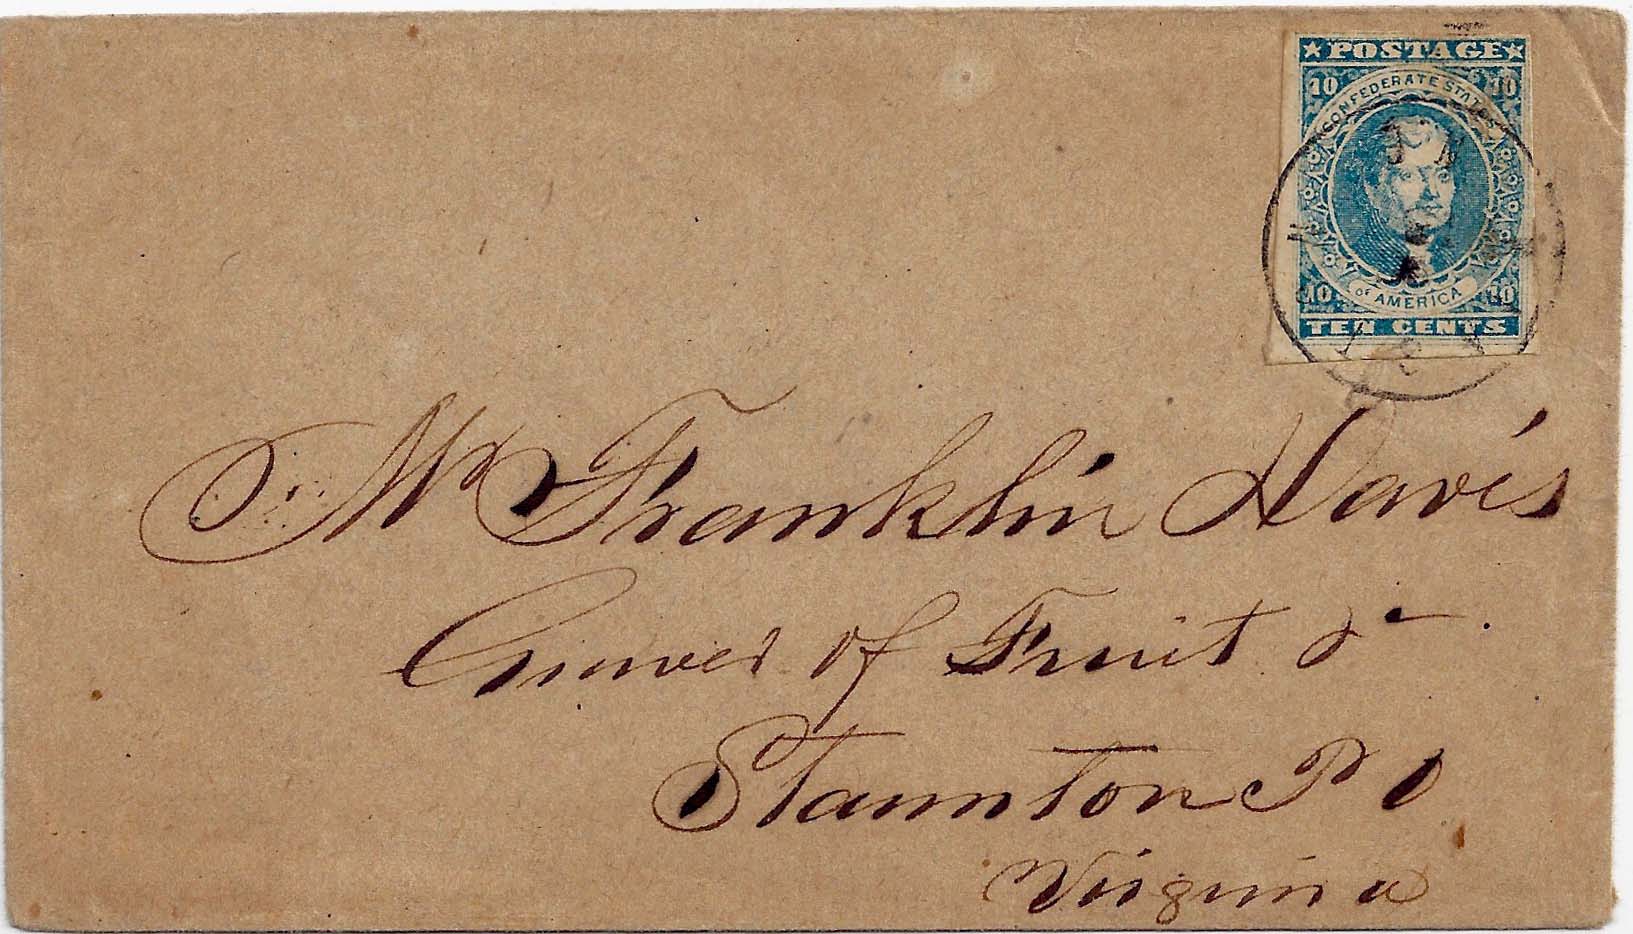 ★POSTAGE★
10 10
CONFEDERATE STATES
of AMERICA
10 10
TEN CENTS
Mr Franklin Davis
Grower of Fruit &
Staunton P O
Virginia